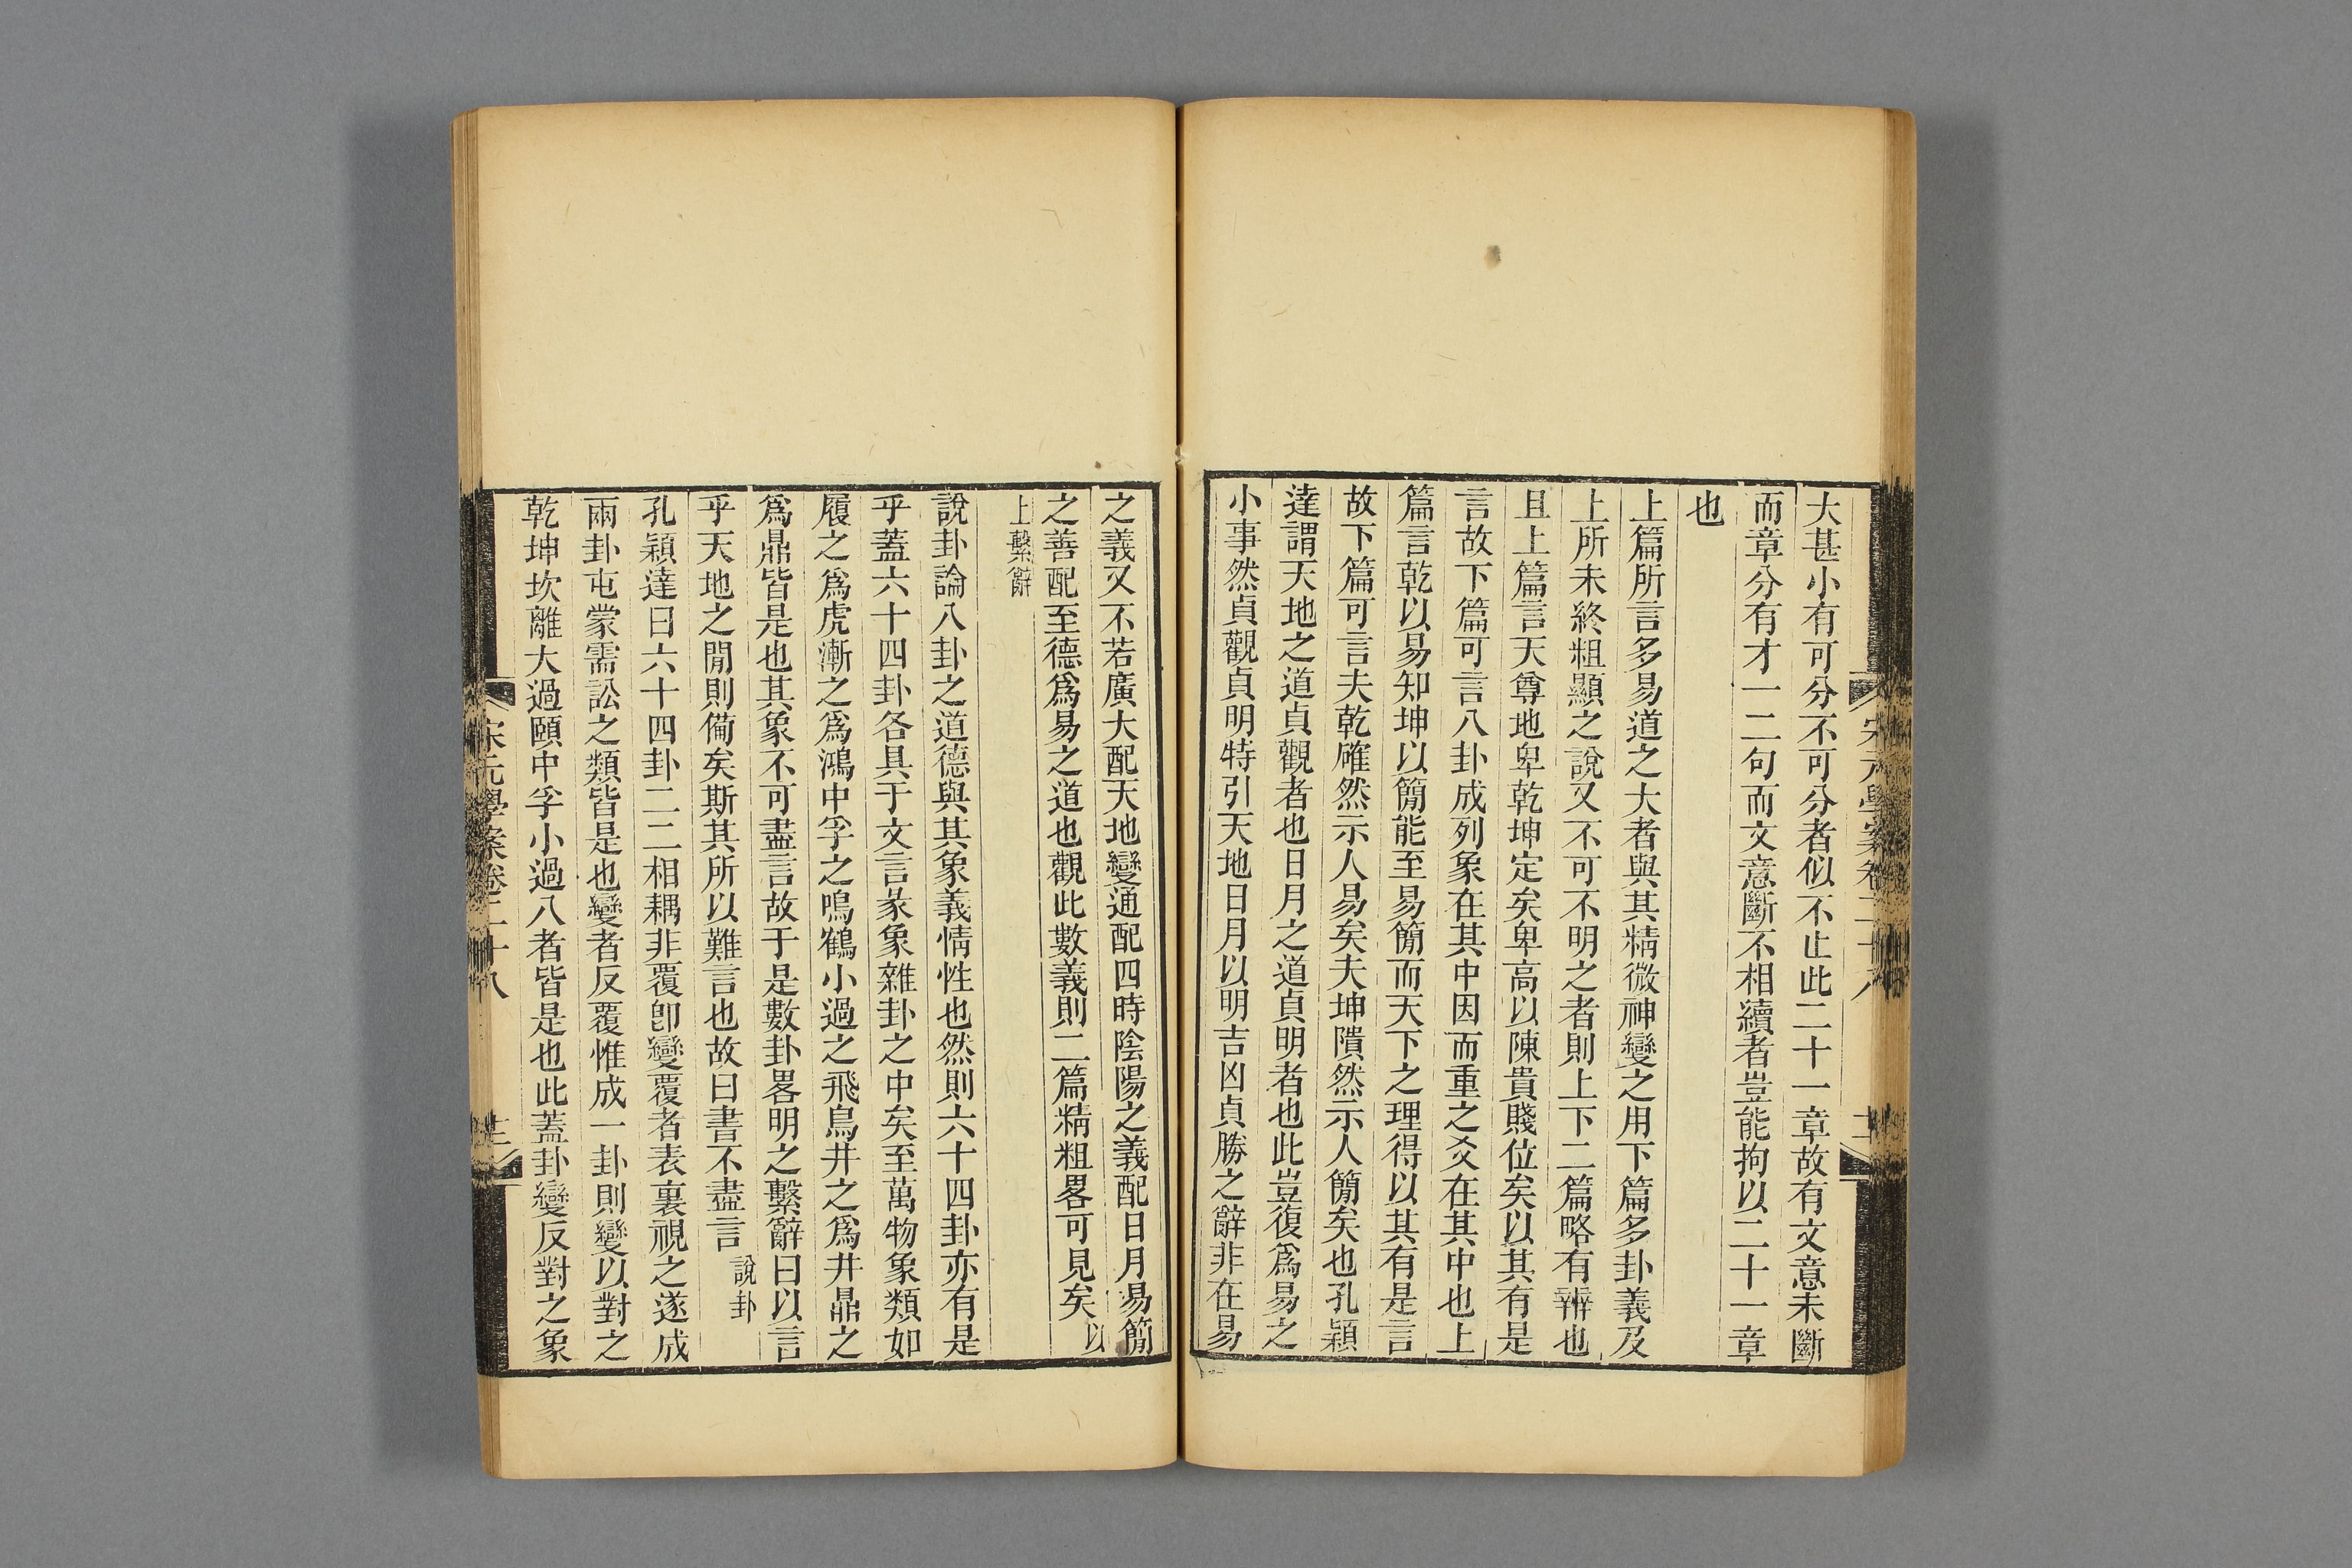 大甚小有可分不可分者似不止此二十一章故有文意未斷
而章分有才一二句而文意斷不相續者豈能拘以二十一章
也
上篇所言多易道之大者與其精微神變之用下篇多卦義及
上所未終粗顯之說又不可不明之者則上下二篇略有辨也
且上篇言天尊地卑乾坤定矣卑高以陳貴賤位矣以其有是
言故下篇可言八卦成列象在其中因而重之爻在其中也上
篇言乾以易知坤以簡能至易簡而天下之理得以其有是言
故下篇可言夫乾確然示人易矣夫坤隤然示人簡矣也孔穎
達謂天地之道貞觀者也日月之道貞明者也此豈復爲易之
小事然貞觀貞明特引天地日月以明吉凶貞勝之辭非在易
之義又不若廣大配天地變通配四時陰陽之義配日月易簡
之善配至德爲易之道也觀此數義則二篇精粗畧可見矣以
上繫辭
說卦論八卦之道德與其象義情性也然則六十四卦亦有是
乎蓋六十四卦各具于文言彖象雜卦之中矣至萬物象類如
履之爲虎漸之爲鴻中孚之鳴鶴小過之飛鳥井之爲井鼎之
爲鼎皆是也其象不可盡言故于是數卦畧明之繫辭曰以言
乎天地之閒則備矣斯其所以難言也故曰書不盡言說卦
孔穎達曰六十四卦二二相耦非覆卽變覆者表裏視之遂成
兩卦屯蒙需訟之類皆是也變者反覆惟成一卦則變以對之
乾坤坎離大過頤中孚小過八者皆是也此蓋卦變反對之象
宋元學案卷二十八